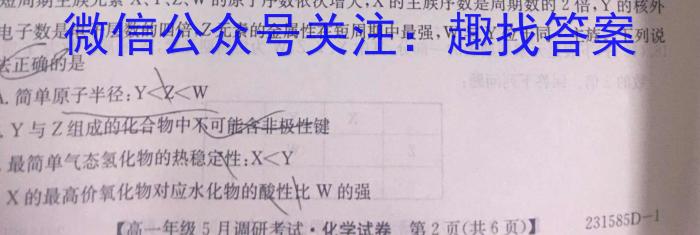 短周期主族元素X、Y、Z、W的原子序数依次增大,X的主族序数是周期数的2倍,Y的核外
微信公众号关注:趣找答案
电子数是 的四倍,Z元素的金属性在短周期中最强,W 下列说
法正确的是
A.简单原子半径:Y<Z<W
.Y与Z组成的化合物中不可能含非极性键
.最简单气态氢化物的热稳定性:X<Y
X的最高价氧化物对应水化物的酸性比W的强
【高一年级5月调研考试·化学试卷 第2页(共6页)】 231585D-1